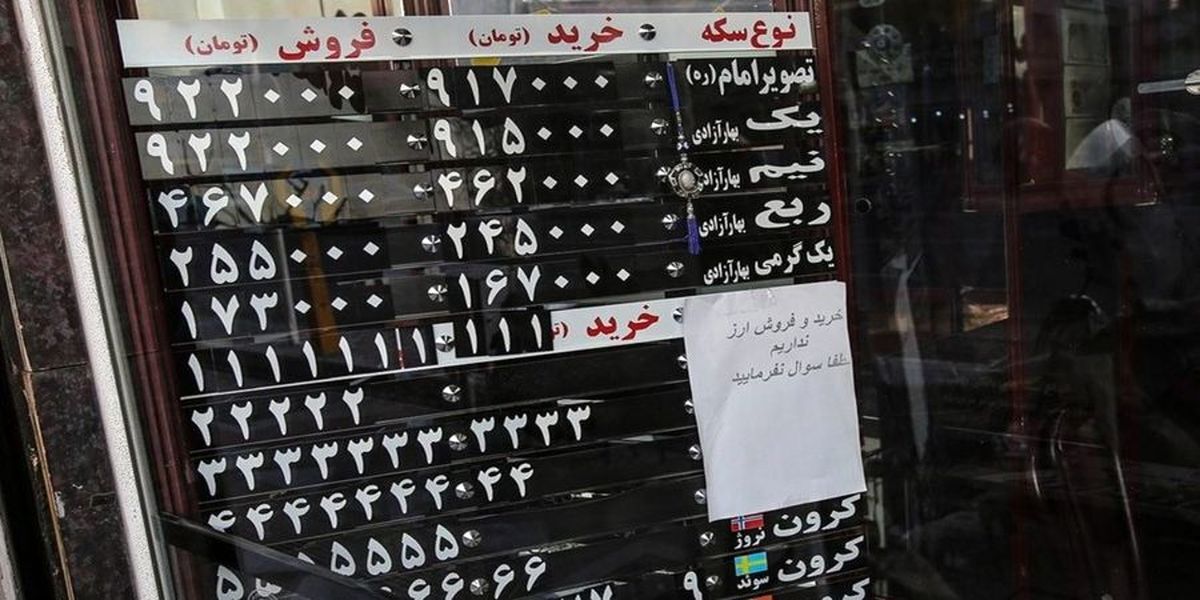 نوع سکه خرید (تومان) فروش (تومان)
تصویر امام (ره) ۹۱۷۰۰۰ ۹۲۲۰۰۰
یک بهار آزادی ۹۱۵۰۰۰ ۹۲۲۰۰۰
نیم بهار آزادی ۴۶۲۰۰۰ ۴۶۷۰۰۰
ربع بهار آزادی ۲۴۵۰۰۰ ۲۵۵۰۰۰
یک گرمی بهار آزادی ۱۶۷۰۰۰ ۱۷۳۰۰۰
خرید ۱۱۱ ۱۱۱۱۱۱۱
۲۲۲۲۲
۳۳۳۳ ۳۳۳۳۳۳۳
۴۴ ۴۴۴۴۴۴۴
خرید و فروش ارز
نداریم
لطفا سوال نفرمایید
کرون نروژ ۵۵۵۵
کرون سوئد ۶۶